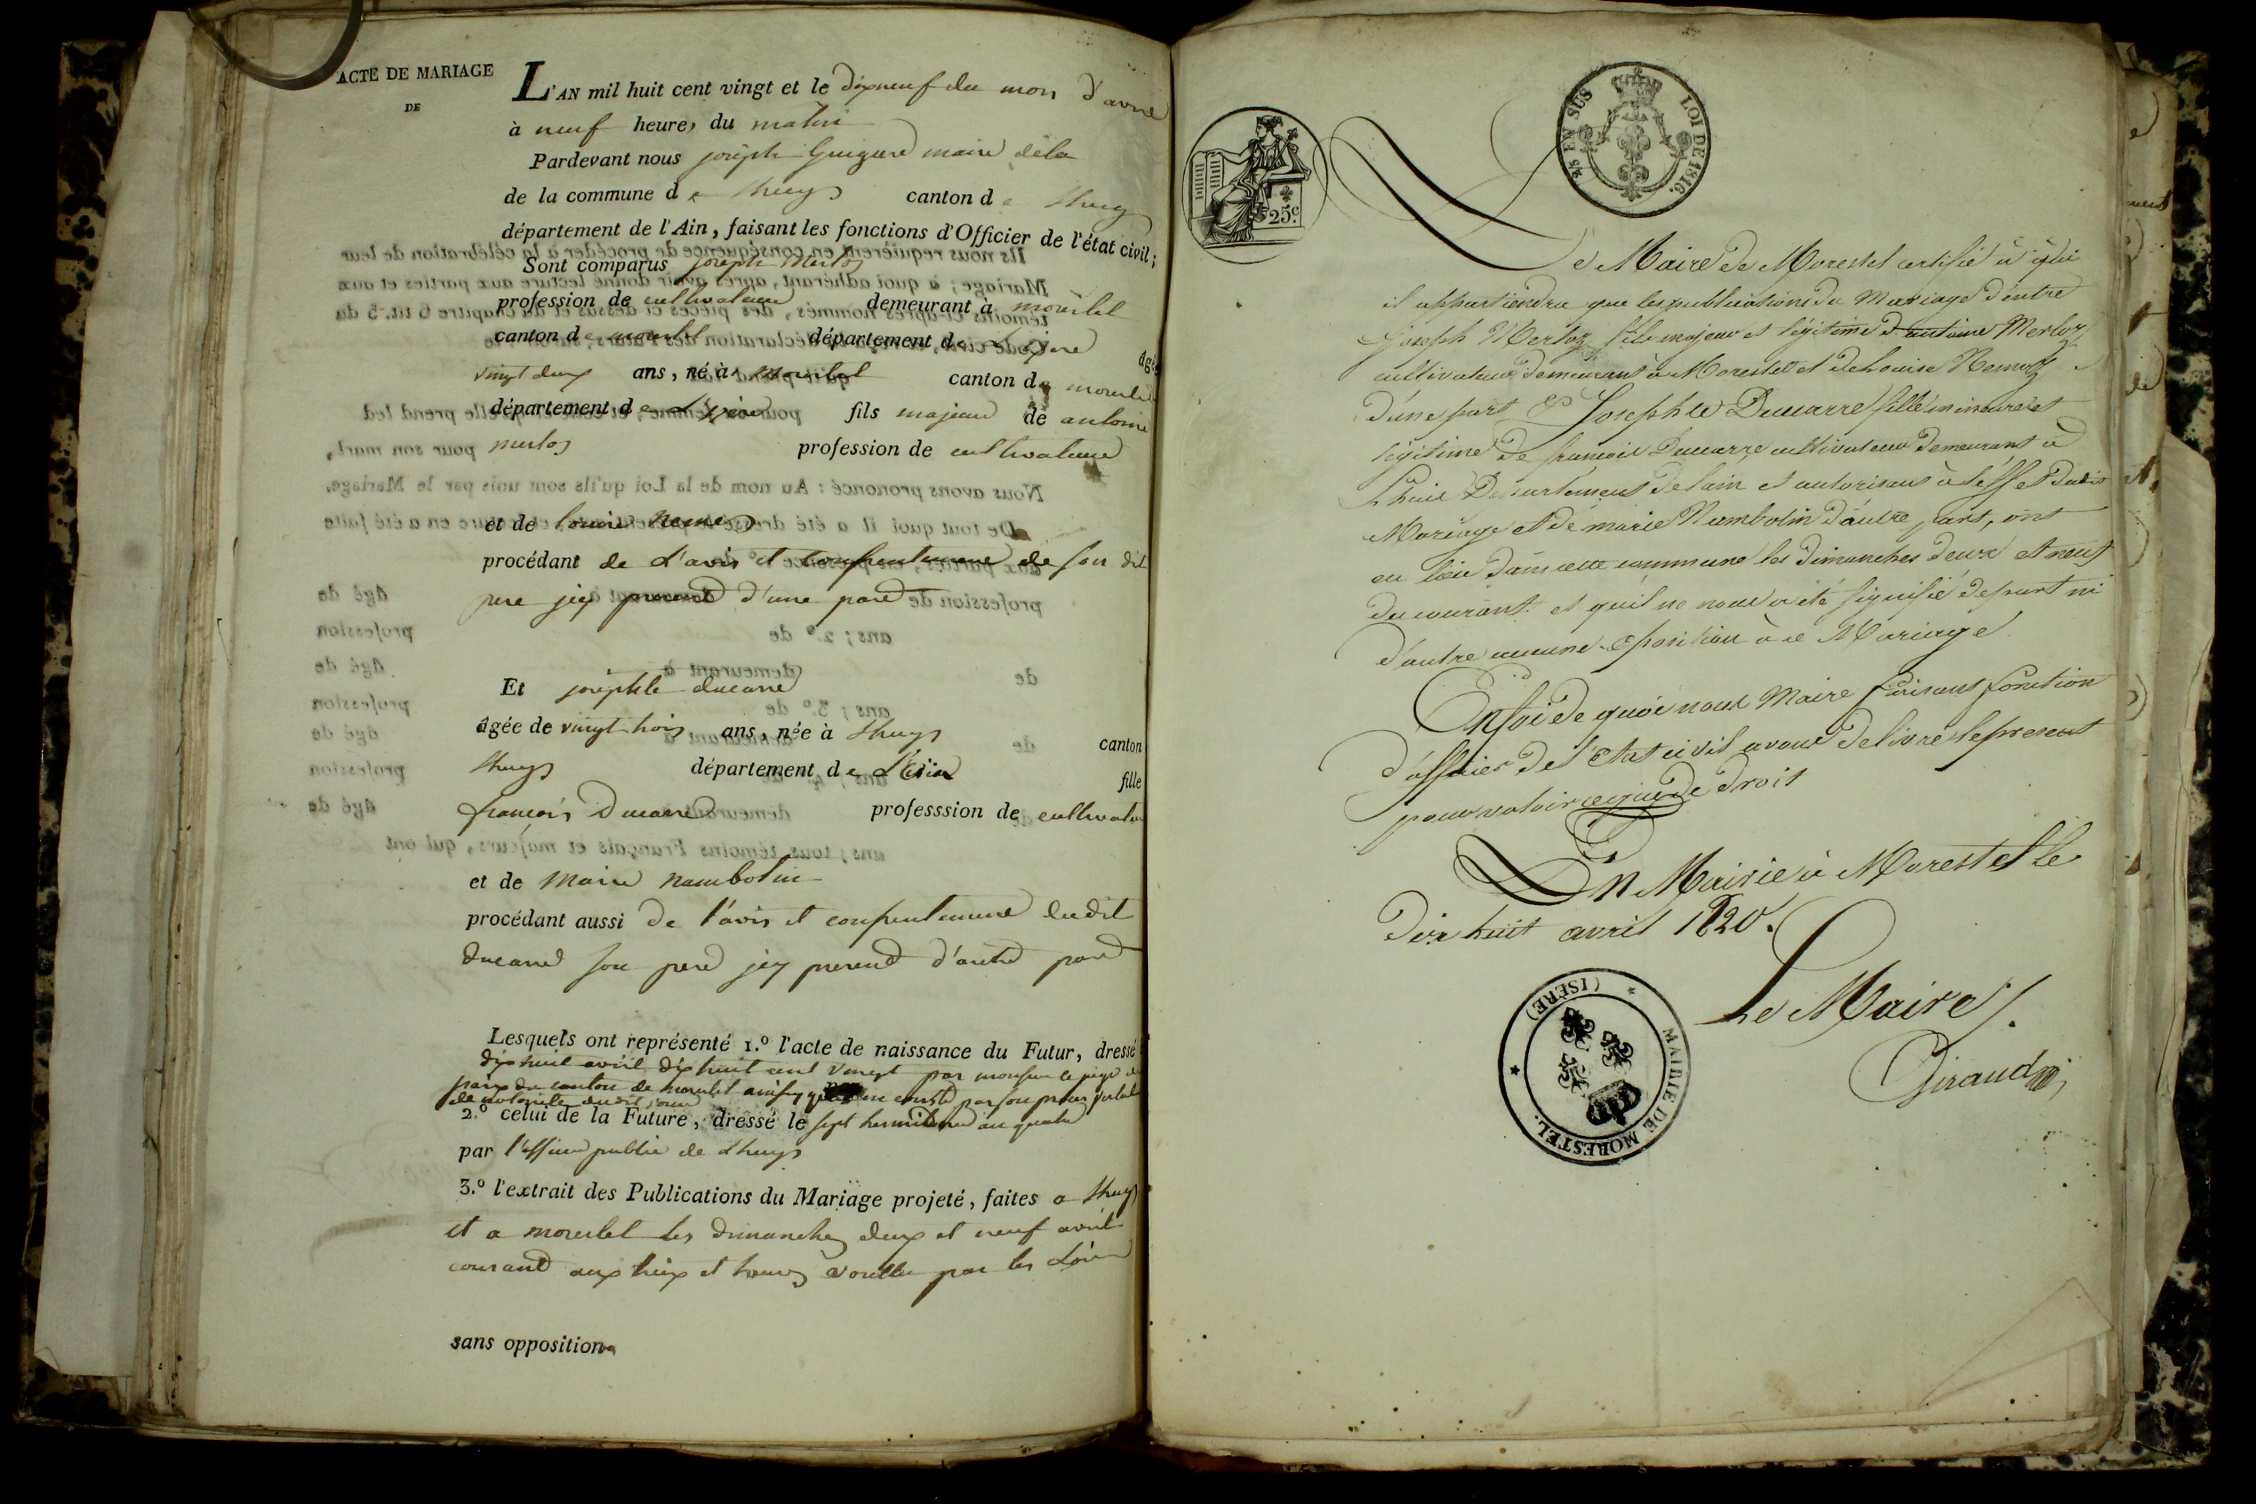 ACTE DE MARIAGE
DE
L'AN mil huit cent vingt et le dixneuf du mois d'avril
à neuf heures du matin
Pardevant nous joseph Guigard maire dela
de la commune de Lhuys canton de Lhuys
département de l'Ain, faisant les fonctions d'Officier de l'état civil;
Sont comparus joseph Merloz
profession de cultivateur demeurant à morestel
canton de morestel département de L'isere âgé
vingt deux ans, né à morestel canton de morestel
département de L'isere fils majeur de antoine
merloz profession de cultivateur
et de louise
procédant de L'avis et consentement de son dit
pere jcy present d'une part
Et joséphte ducarre
âgée de vingt trois ans, née à Lhuys canton
Lhuys département de L'Ain fille
françois Ducarre professsion de cultivateur
et de Marie nambotin
procédant aussi de l'avis et consentement dudit
ducarre son pere jcy present d'autre part
Lesquels ont représenté 1.º l'acte de naissance du Futur, dressé
dix huit avril dix huit cent vingt par monsieur le juge de
paix du canton de morestel ainsy qu'il me conste par son procès verbal
de notoriété dudit jour
2.º celui de la Future, dressé le sept an quatre
par l'officier public de Lhuys
3.º l'extrait des Publications du Mariage projeté, faites a Lhuys
et a morestel les dimanches deux et neuf avril
courant aux lieux et heures voullu par les Loix
sans opposition
25 EN SUS LOI DE 1816.
25.c
Le Maire de Morestel certifie à qui
il appartiendra que les publications du Mariage d'entre
Joseph Merloz fils majeur et légitime d'antoine Merloz
cultivateur demeurant à Morestel et de Louise
d'une part & Josephte Ducarre fille mineure et
légitime de francois Ducarre cultivateur demeurant à
Lhuis Département de lain et autorisant à l'effet dudit
Mariage et de marie Nambotin d'autre part, ont
eu lieu dans cette commune les dimanches deux et neuf
du courant. et qu'il ne nous a été signifié de part ni
d'autre aucune oposition à ce Mariage
En foi de quoi nous Maire faisant fonction
d'officier de l'Etat civil avons délivré le present
pour valoir ce que de droit
En Mairie à Morestel le
dix huit avril 1820.
Le Maire
Giraud
MAIRIE DE MORESTEL. (ISÈRE)